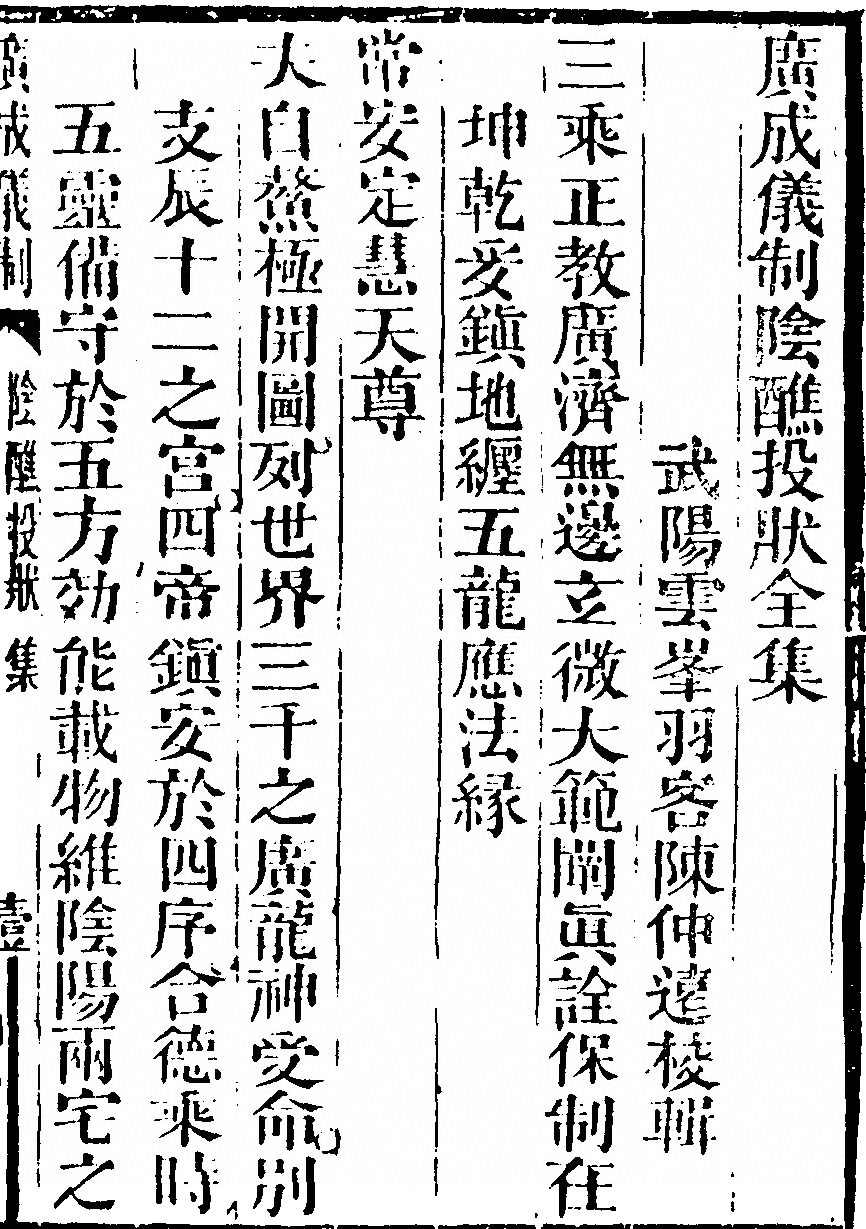 廣成儀制陰醮投狀全集
武陽雲峯羽客陳仲遠校輯
三乘正教廣濟無邊立微大範闡眞詮保制在
坤乾爰鎭地纏五龍應法緣
常安定慧天尊
夫自鰲極開圖列世界三千之廣龍神受命別
支辰十二之宮四帝鎭安於四序合德乘時
五靈備守於五方効能載物維陰陽兩宅之
廣成儀制 陰醮投狀集 壹